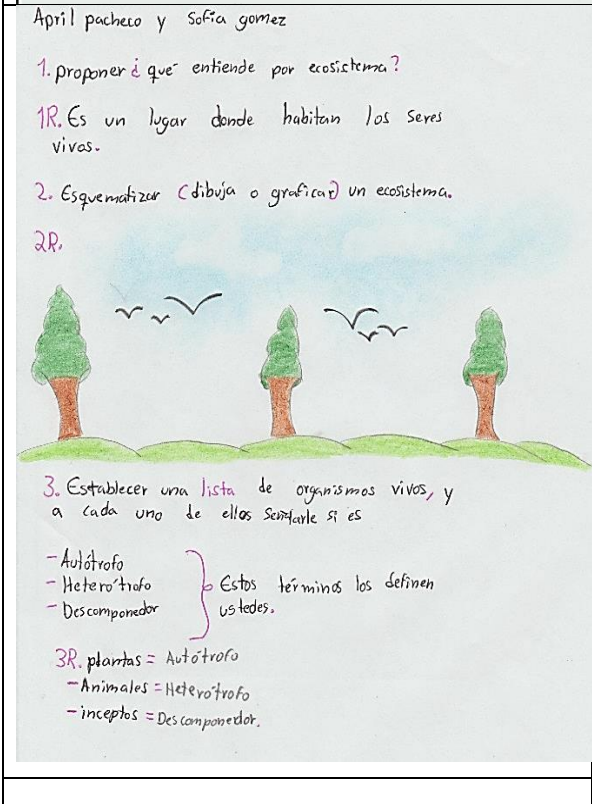 April pacheco y Sofia gomez
1. proponer ¿ que entiende por ecosistema?
1R. Es un lugar donde habitan los seres
vivos.
2. Esquematizar (dibuja o graficar) un ecosistema.
2R.
3. Establecer una lista de organismos vivos, y
a cada uno de ellos señalarle si es
- Autótrofo
- Heterótrofo
- Descomponedor
Estos términos los definen
ustedes.
3R. plantas = Autótrofo
- Animales = Heterótrofo
- inceptos = Descomponedor.